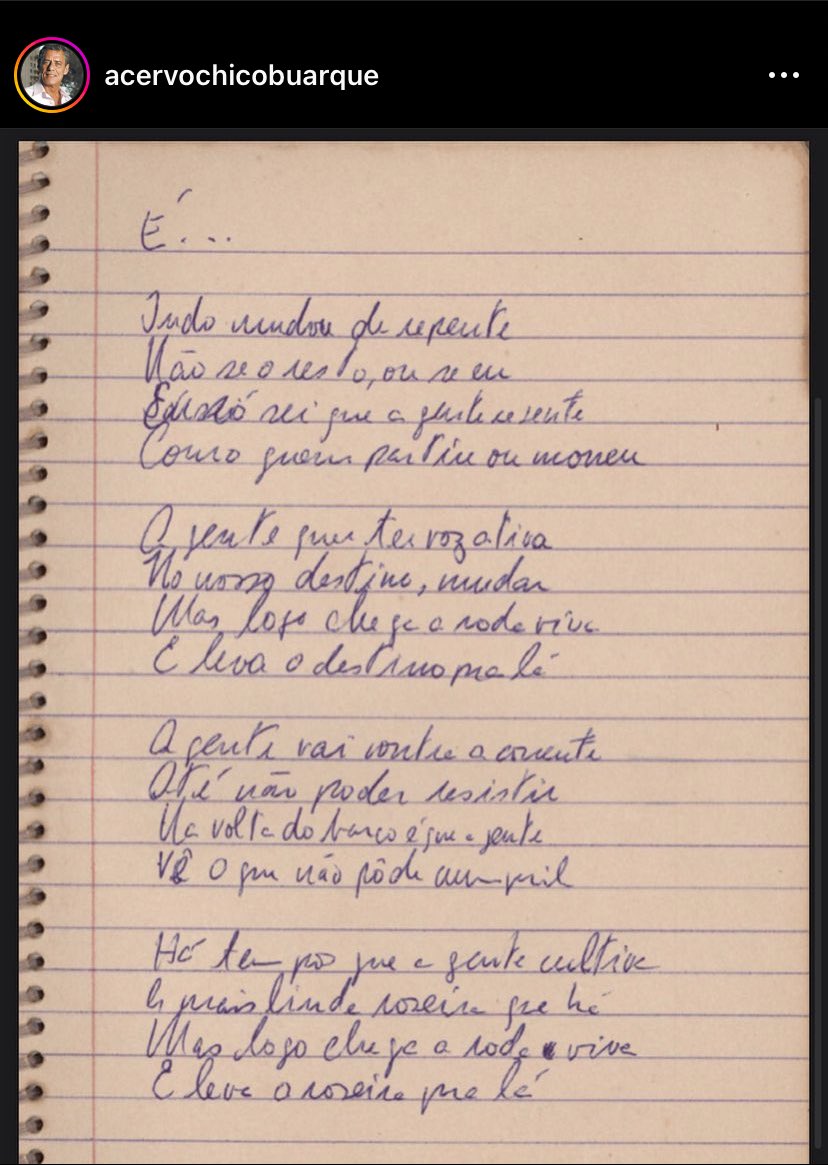 acervochicobuarque
É...
Tudo mudou de repente
Não se o resto, ou se eu
Eu só sei que a gente se sente
Como quem partiu ou morreu
A gente quer ter voz ativa
No nosso destino, mudar
Mas logo chega a roda viva
E leva o destino pra lá
A gente vai contra a corrente
Até não poder resistir
Na volta do barco é que a gente
Vê o que não pôde cumprir
Há tempos que a gente cultiva
A mais linda roseira que há
Mas logo chega a roda viva
E leva a roseira pra lá